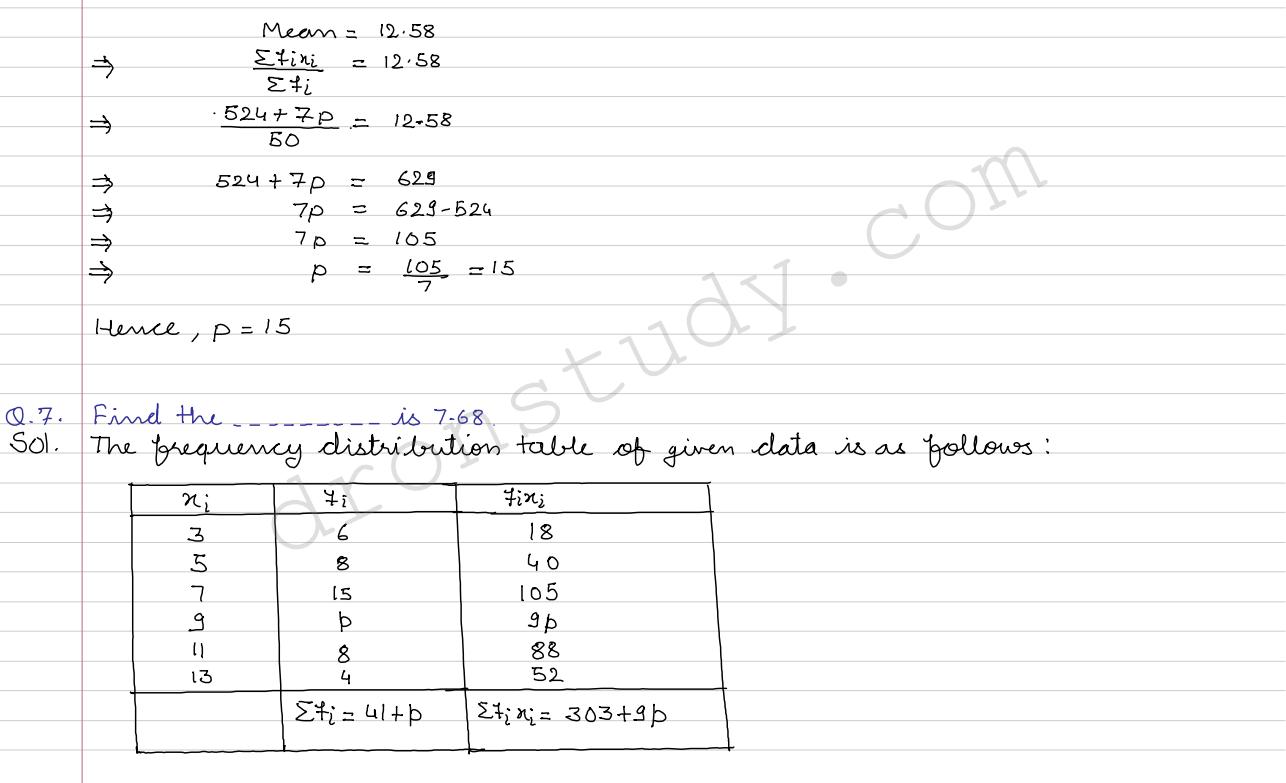 Mean = 12.58
⇒ Σfixi / Σfi = 12.58
⇒ 524 + 7p / 50 = 12.58
⇒ 524 + 7p = 629
⇒ 7p = 629 - 524
⇒ 7p = 105
⇒ p = 105/7 = 15
Hence, p = 15
Q.7. Find the --------- is 7.68.
Sol. The frequency distribution table of given data is as follows:
xi fi fixi
3 6 18
5 8 40
7 15 105
9 p 9p
11 8 88
13 4 52
Σfi = 41+p Σfixi = 303+9p
dronstudy.com